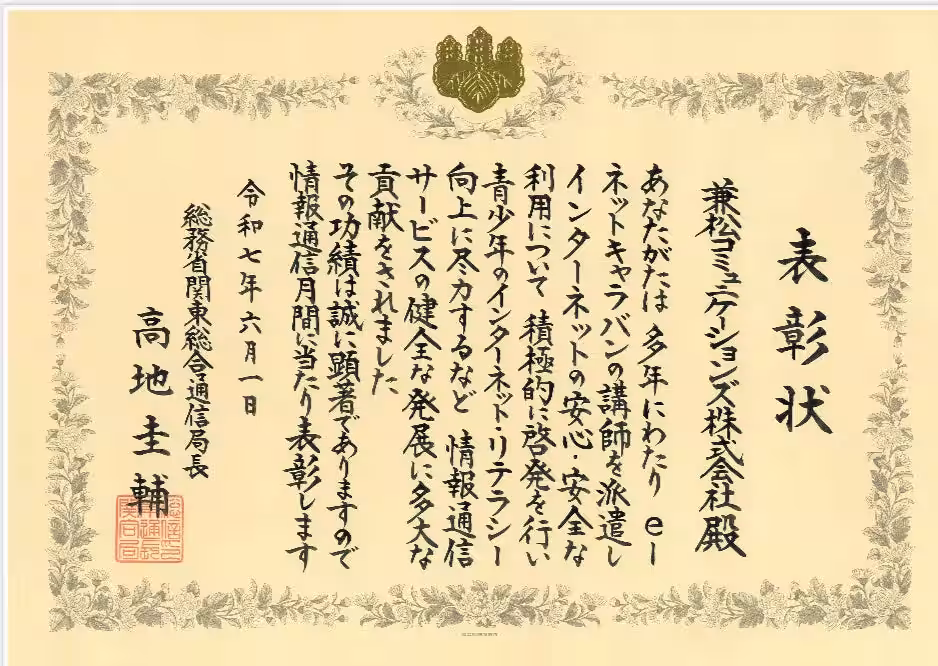 表彰状
兼松コミュニケーションズ株式会社殿
あなたがたは多年にわたりe－
ネットキャラバンの講師を派遣し
インターネットの安心・安全な
利用について積極的に啓発を行い
青少年のインターネット・リテラシー
向上に尽力するなど情報通信
サービスの健全な発展に多大な
貢献をされました
その功績は誠に顕著でありますので
情報通信月間に当たり表彰します
令和七年六月一日
総務省関東総合通信局長
高地圭輔